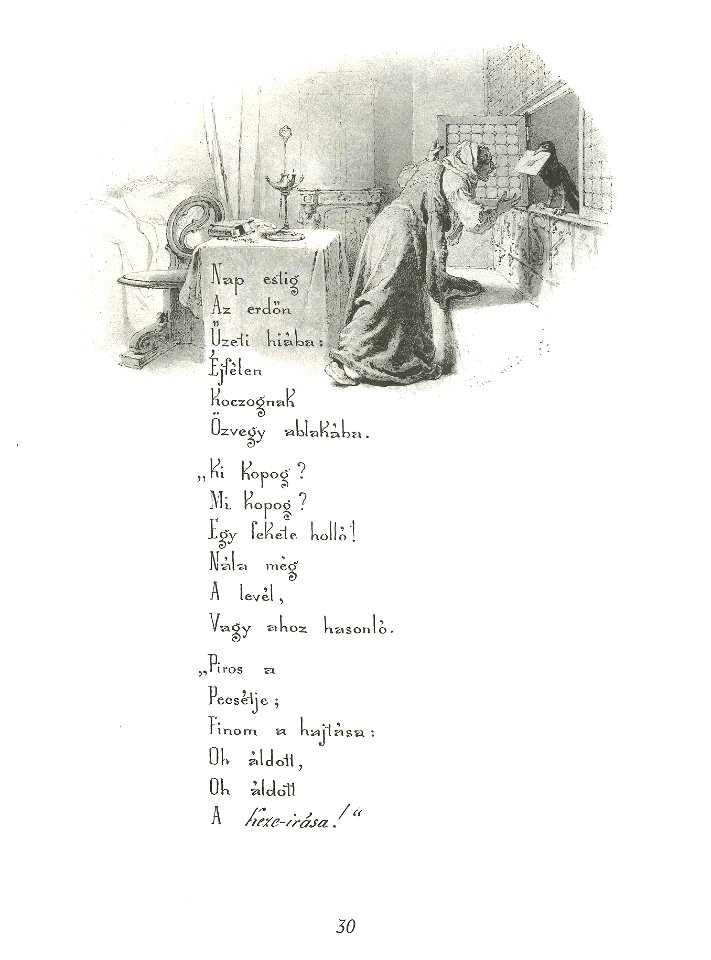 Nap estig
Az erdőn
Űzeti hiába:
Éjfélen
Koczognak
Özvegy ablakába.
„Ki kopog?
Mi kopog?
Egy fekete holló!
Nála még
A levél,
Vagy ahoz hasonló.
„Piros a
Pecsétje;
Finom a hajtása:
Oh áldott,
Oh áldott
A keze-irása!“
30